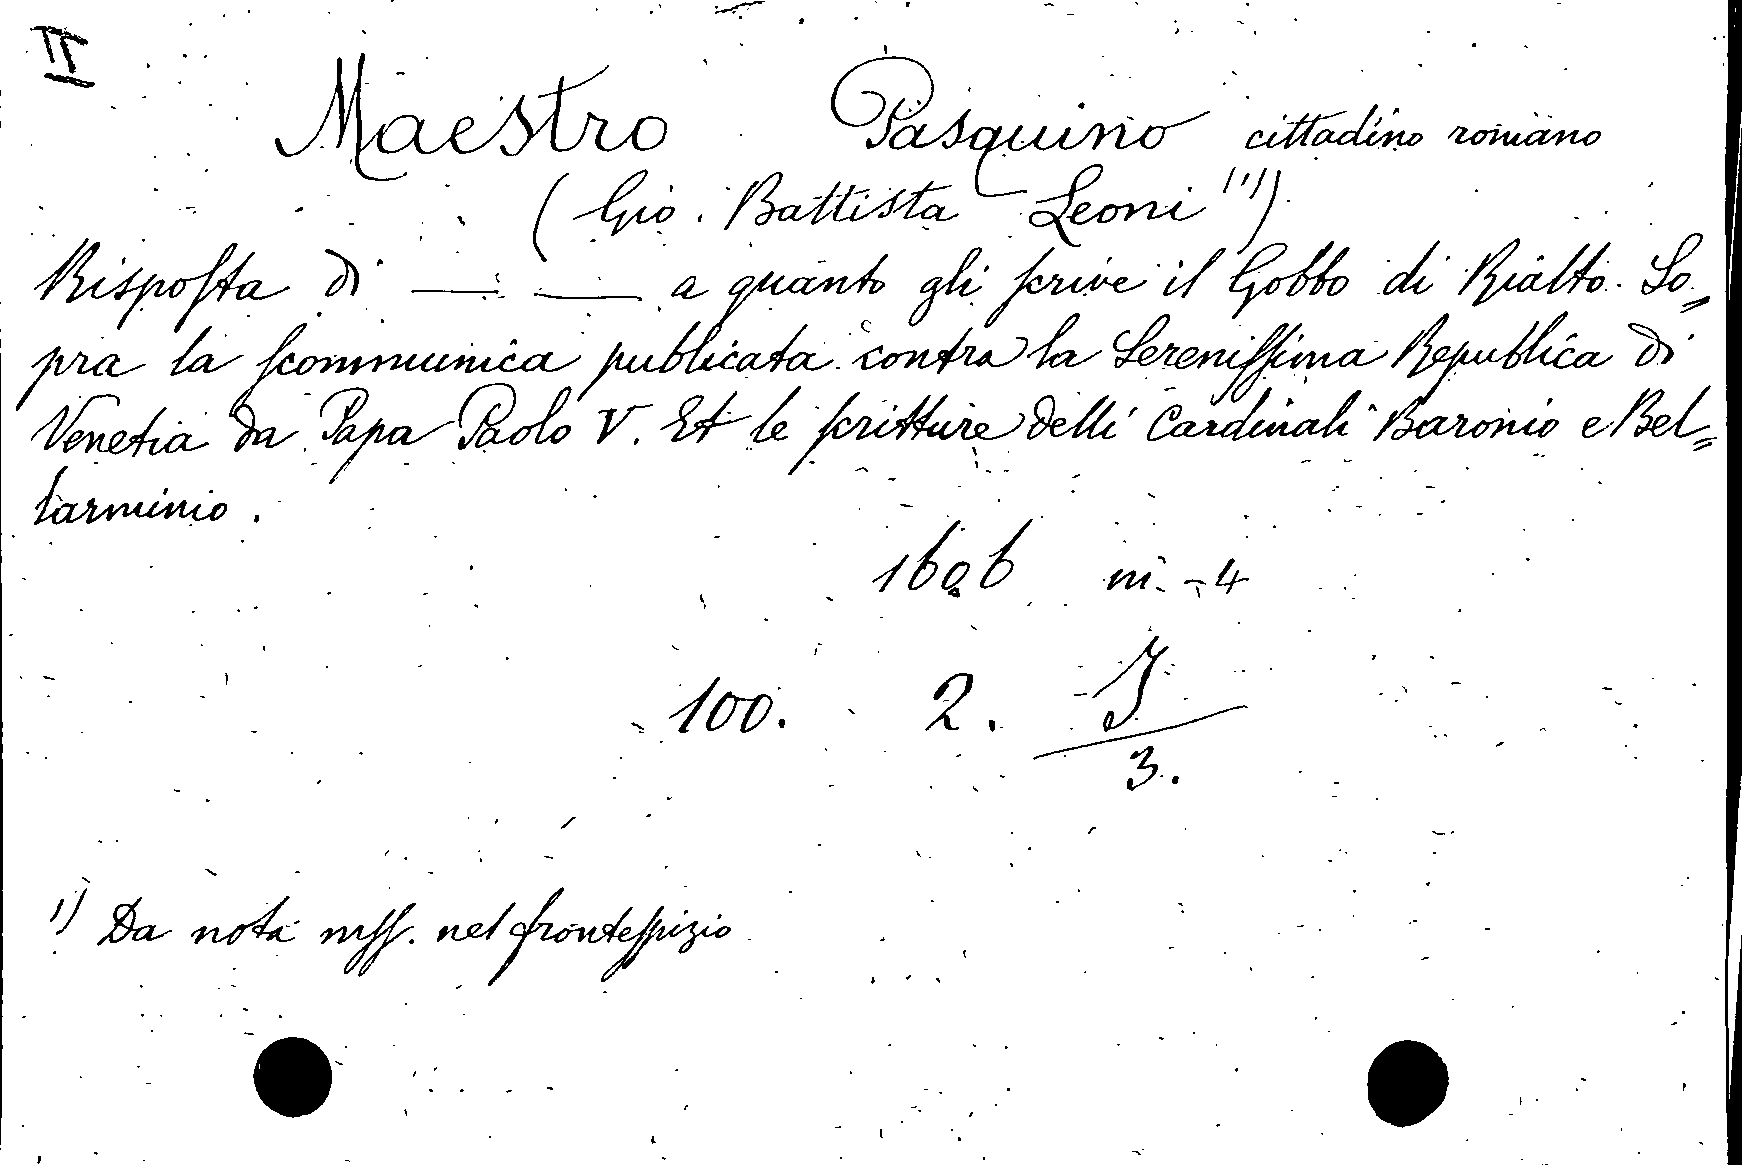 II
Maestro Pasquino cittadino romano
(Gio. Battista Leoni 1))
Risposta di — — a quanto gli scrive il Gobbo di Rialto. So„
pra la scommunica publicata contra la Serenissima Republica di
Venetia da Papa Paolo V. Et le scritture delli Cardinali Baronio e Bel„
larminio.
1606 in-4
100. 2. I
3.
1) Da nota mss. nel frontespizio